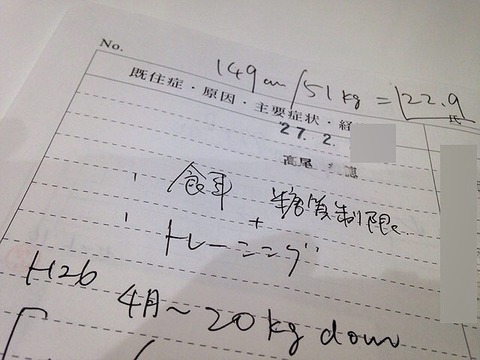 No.
149cm/51kg = 22.9
既往症・原因・主要症状・経
27.2.
高尾
食事 糖質制限。
+
トレーニング
H26
4月〜20kg down